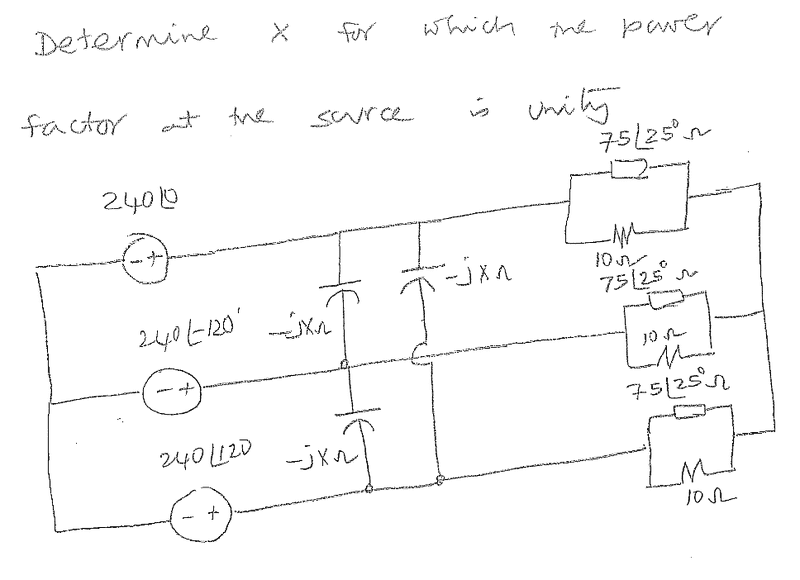 Determine X for which the power
factor at the source is unity
75∠25° Ω
240∠0
10Ω
-jXΩ
75∠25° Ω
240∠-120° -jXΩ
10Ω
75∠25° Ω
240∠120 -jXΩ
10Ω